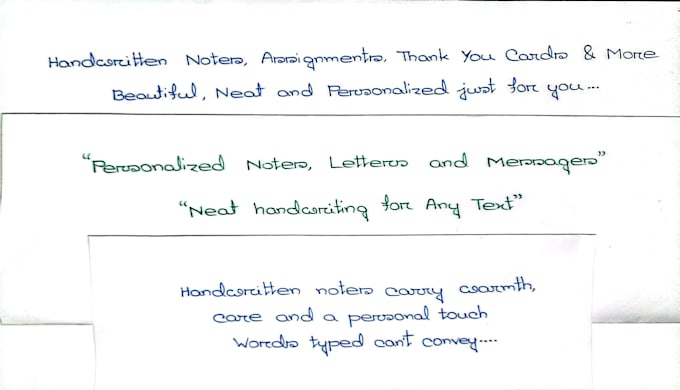 Handwritten Notes, Assignments, Thank You Cards & More
Beautiful, Neat and Personalized just for you...
"Personalized Notes, Letters and Messages"
"Neat handwriting for Any Text"
Handwritten notes carry warmth,
care and a personal touch
Words typed can't convey....